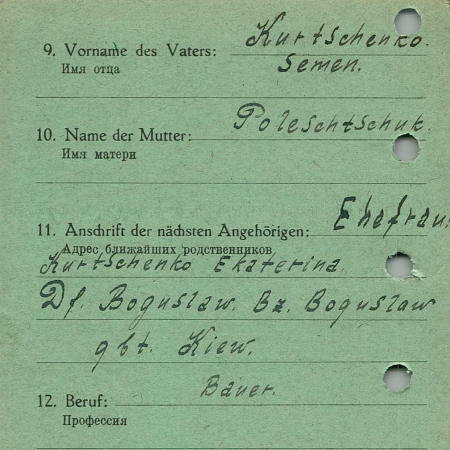 Kurtschenko.
9. Vorname des Vaters: Semen.
Имя отца
10. Name der Mutter: Poleschtschuk.
Имя матери
11. Anschrift der nächsten Angehörigen: Ehefrau,
Адрес ближайших родственников
Kurtschenko Ekaterina.
Df. Boguslaw. Bz. Boguslaw
gbt. Kiew.
12. Beruf: Bauer.
Профессия